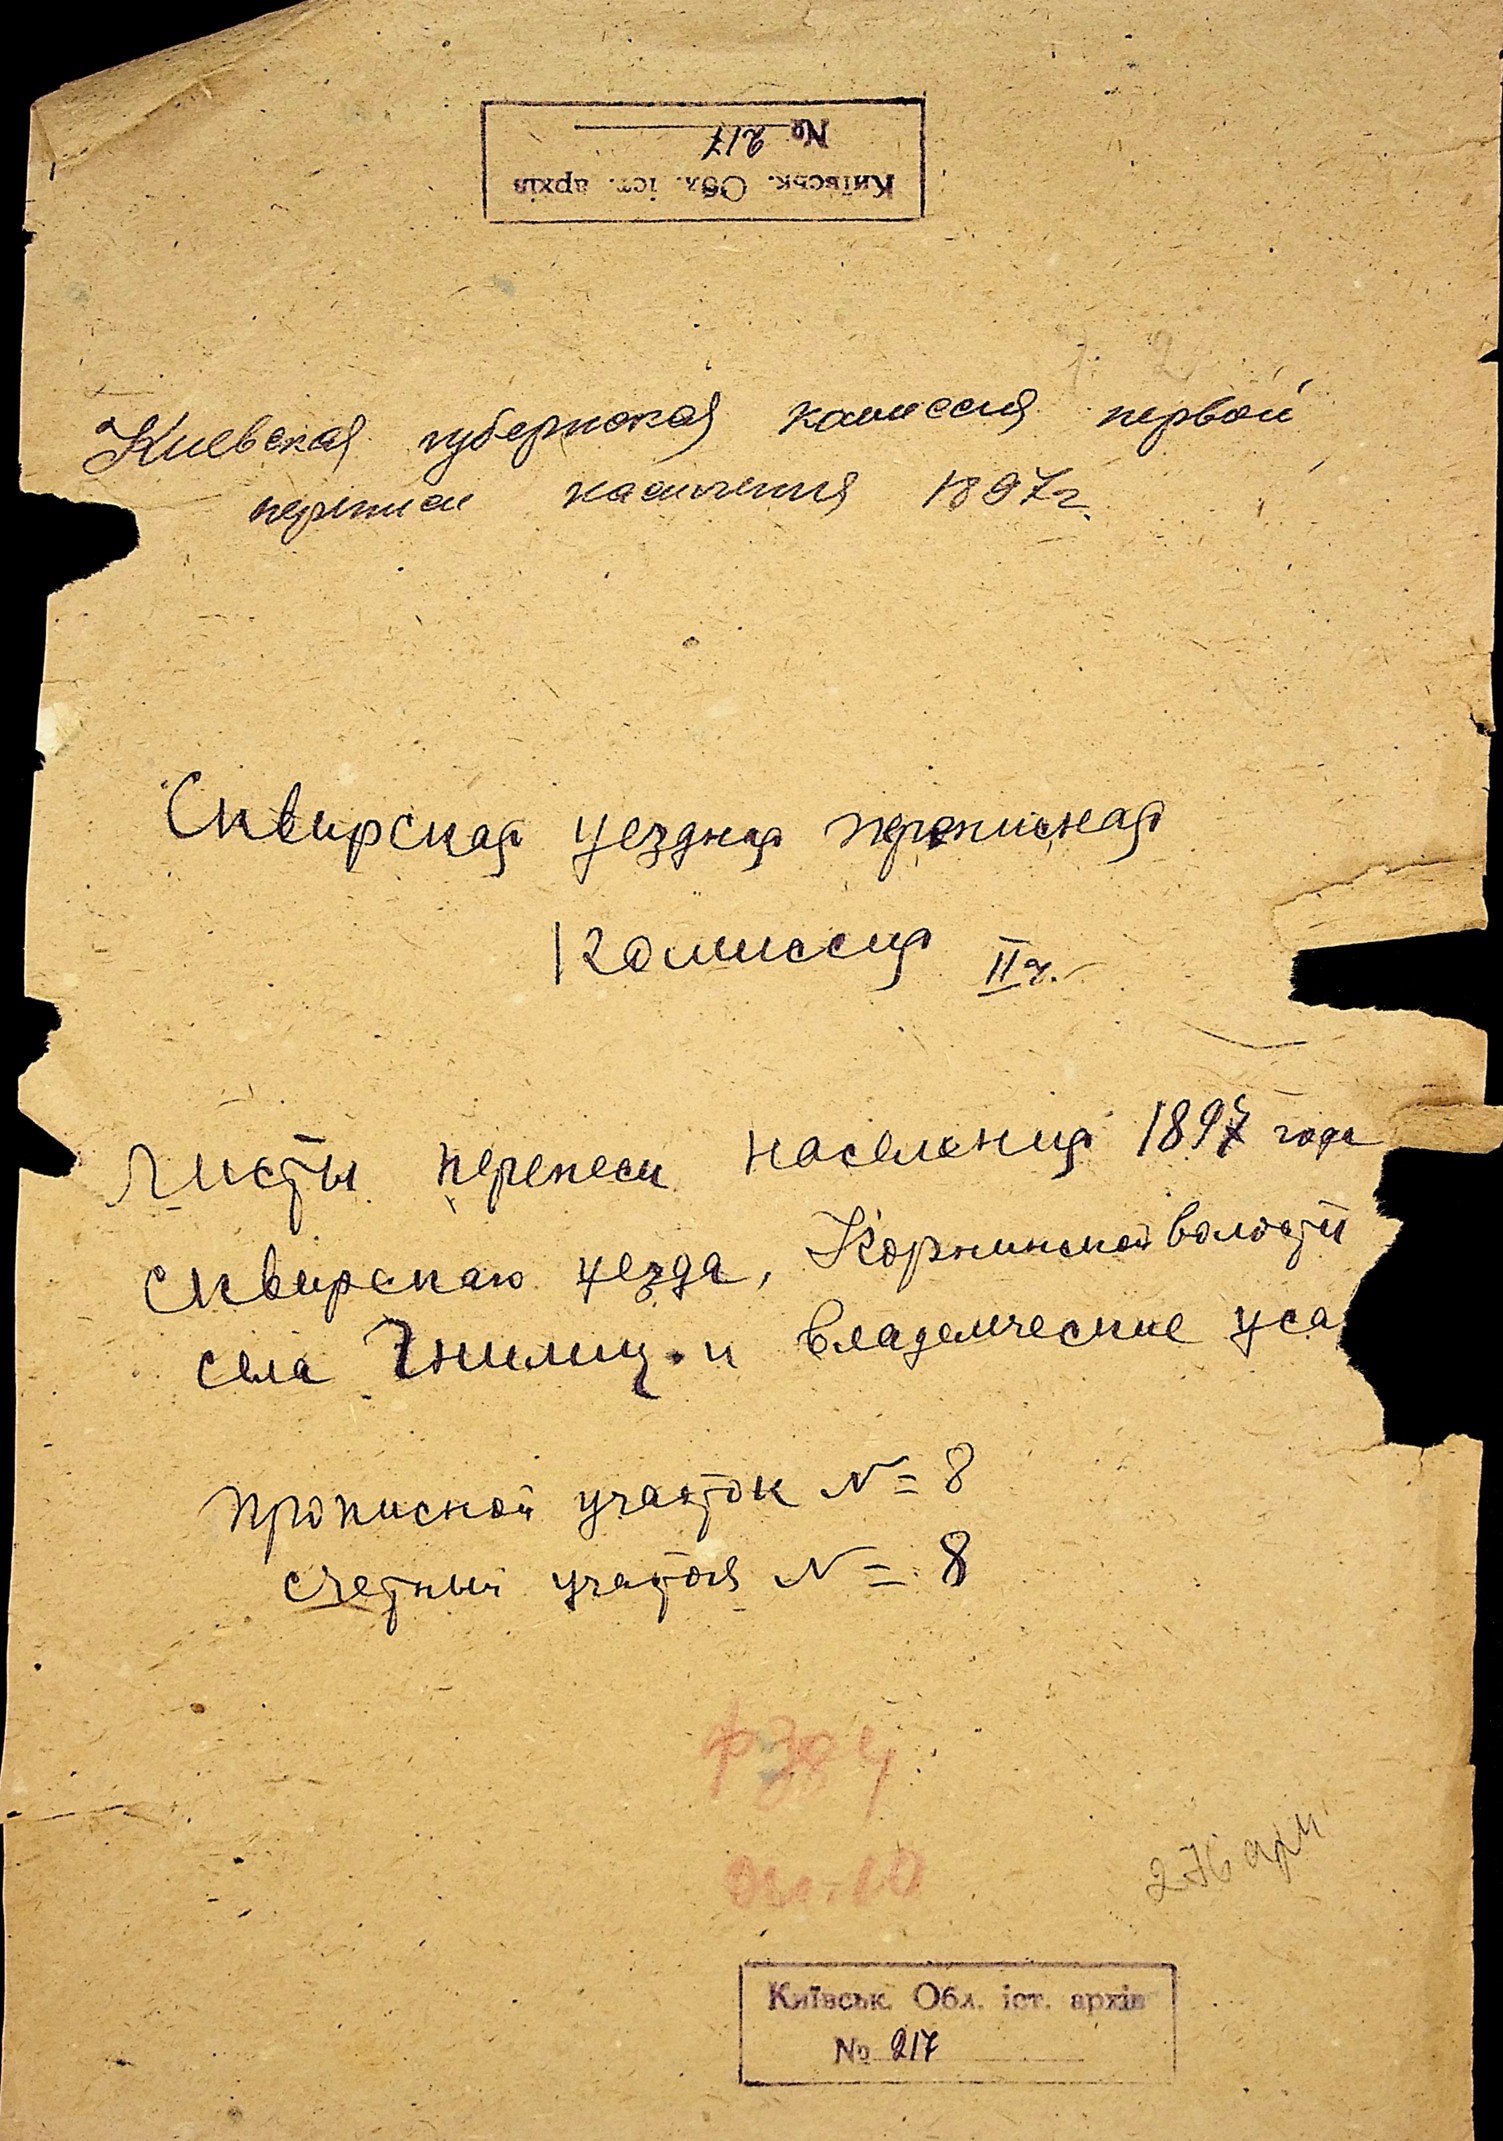 Київськ. Обл. іст. архів
№ 217
Киевская губернская комиссия первой
переписи населения 1897г.
Сквирская уездная переписная
Комиссия II ч.
Листы переписи населения 1897 года
Сквирскаго уезда, Корнинской волости
села Гнилец. и владельческие уса
Прописной участок № 8
счетный участок № 8
ф 384
оп. 10
Київськ. Обл. іст. архів
№ 217